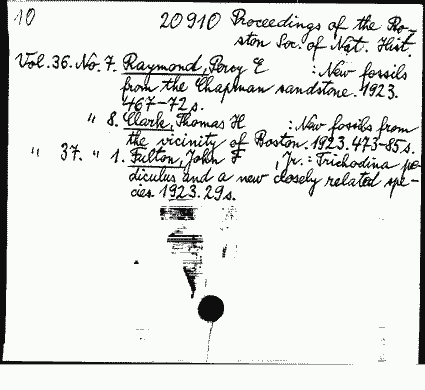 10 20910 Proceedings of the Bo-
ston Soc. of Nat. Hist.
Vol. 36. No. 7. Raymond, Percy E : New fossils
from the Chapman sandstone. 1923.
467-72 s.
" 8. Clark, Thomas H : New fossils from
the vicinity of Boston. 1923. 473-85 s.
" 37. " 1. Fulton, John F , Jr. : Trichodina pe-
diculus and a new closely related spe-
cies. 1923. 29 s.